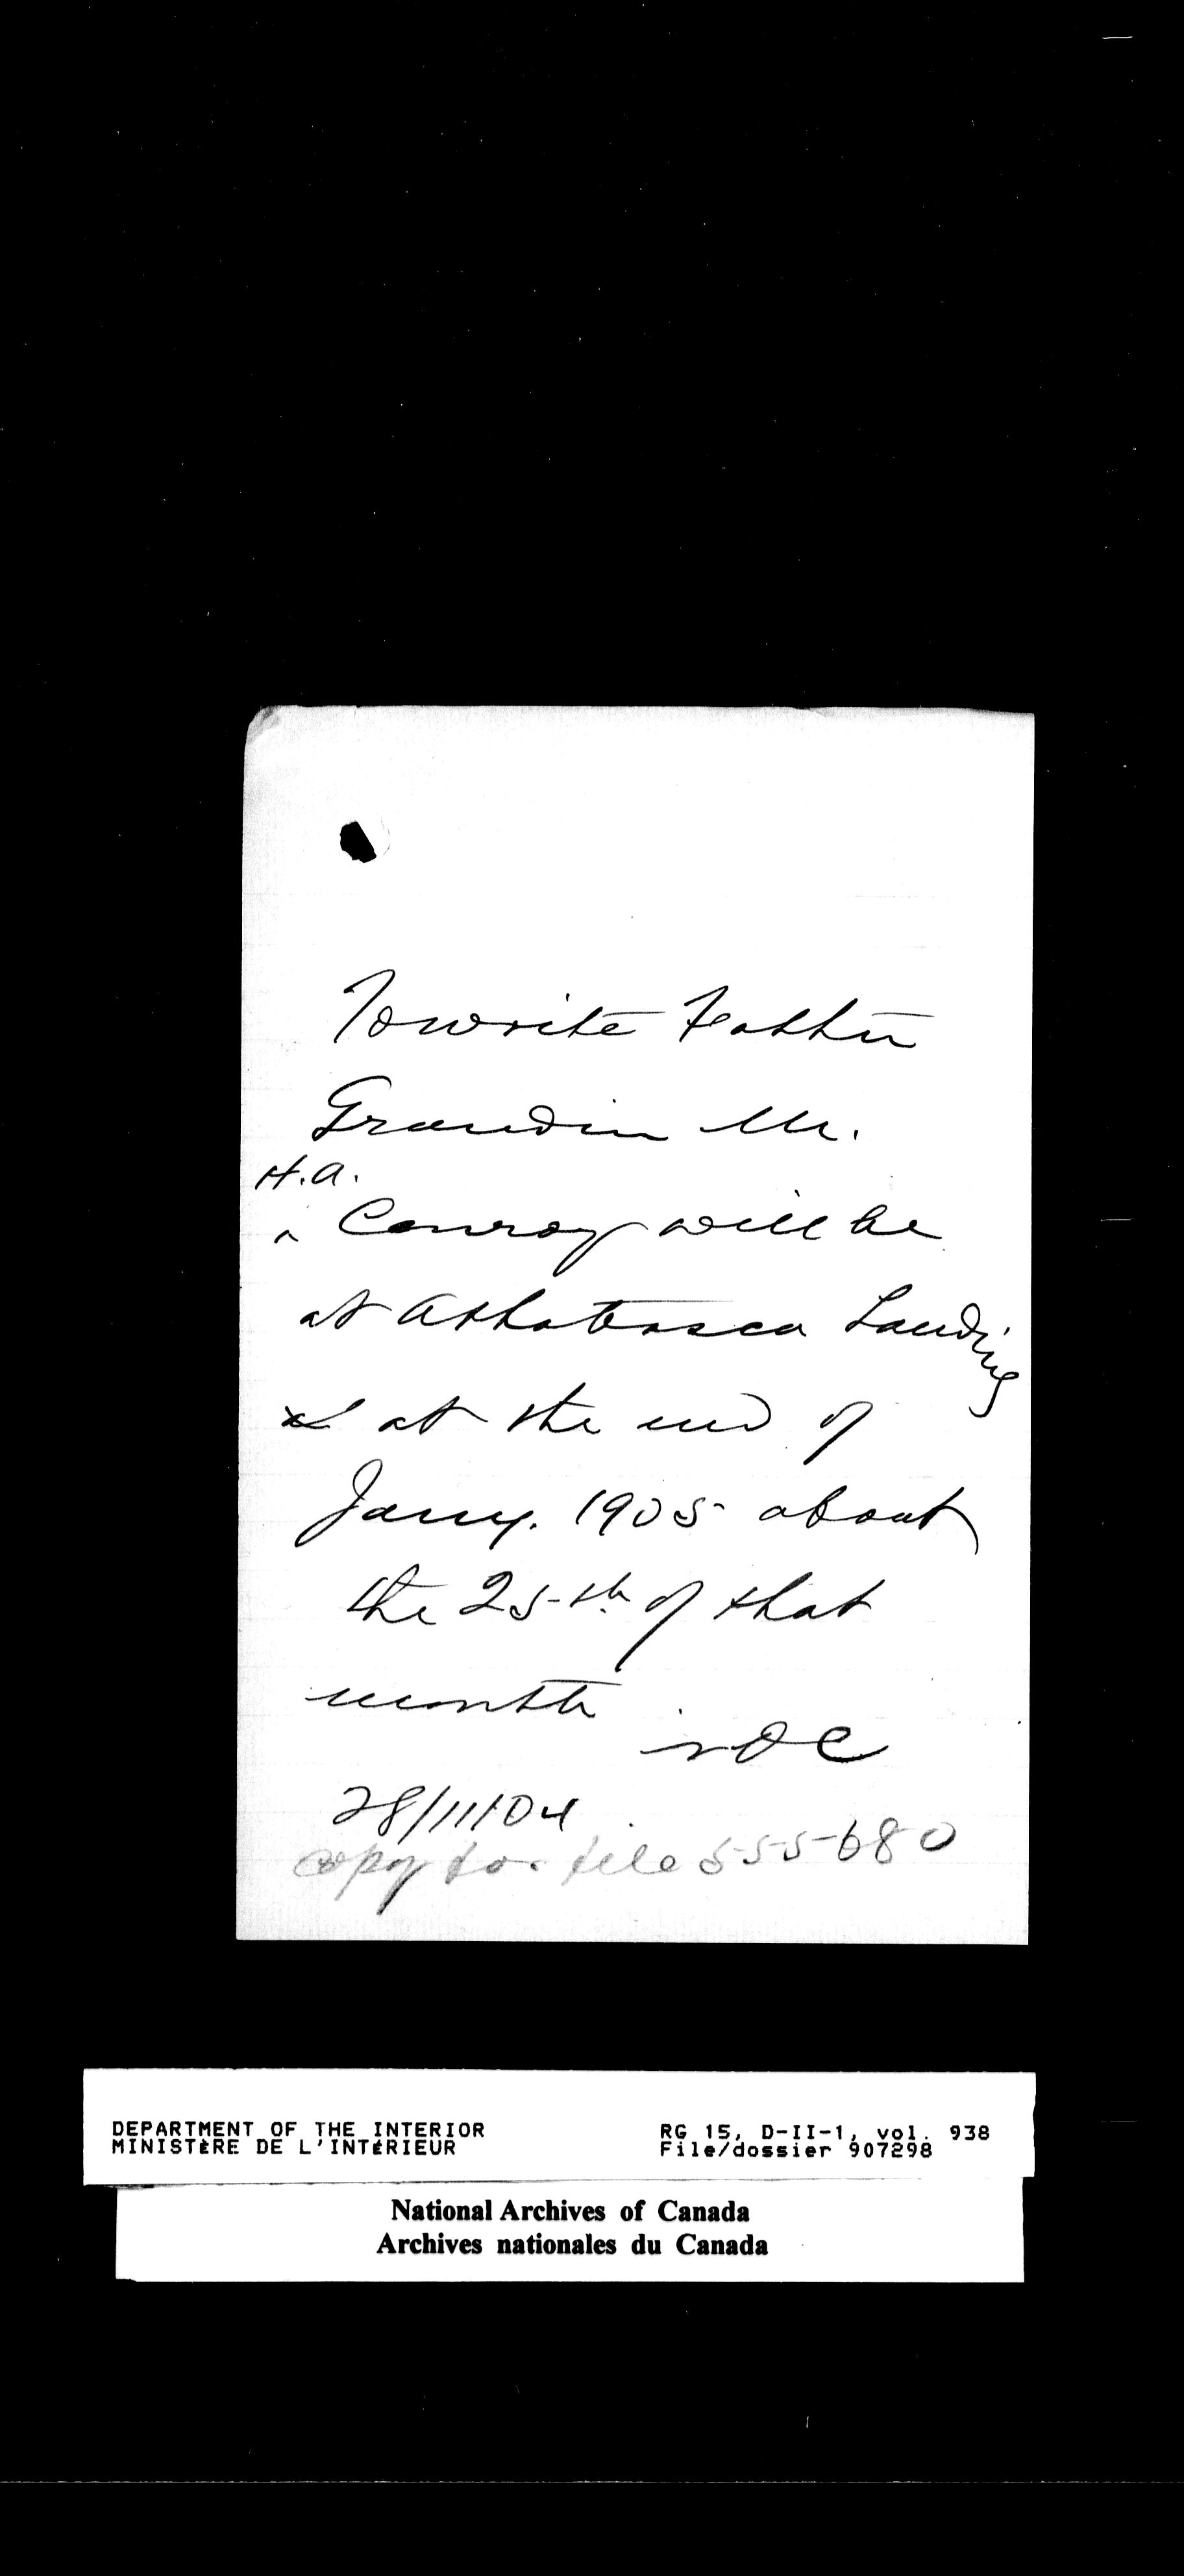 To write Father
Grandin Mr.
H.A.
^ Conroy will be
at Athabasca Landing
at the end of
Jany. 1905 about
the 25th of that
month
28/11/04
copy for file 555680
DEPARTMENT OF THE INTERIOR
MINISTÈRE DE L'INTÉRIEUR
RG 15, D-II-1, vol. 938
File/dossier 907298
National Archives of Canada
Archives nationales du Canada